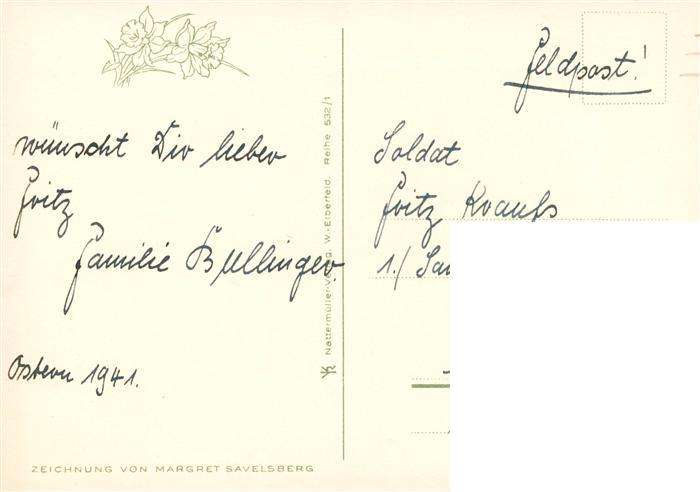 wünscht Dir lieber
Fritz
Familie Bullinger.
Ostern 1941.
ZEICHNUNG VON MARGRET SAVELSBERG
Nattermüller-Verlag, W.-Elberfeld. Reihe 532/1
Feldpost!
Soldat
Fritz Krauß
1./